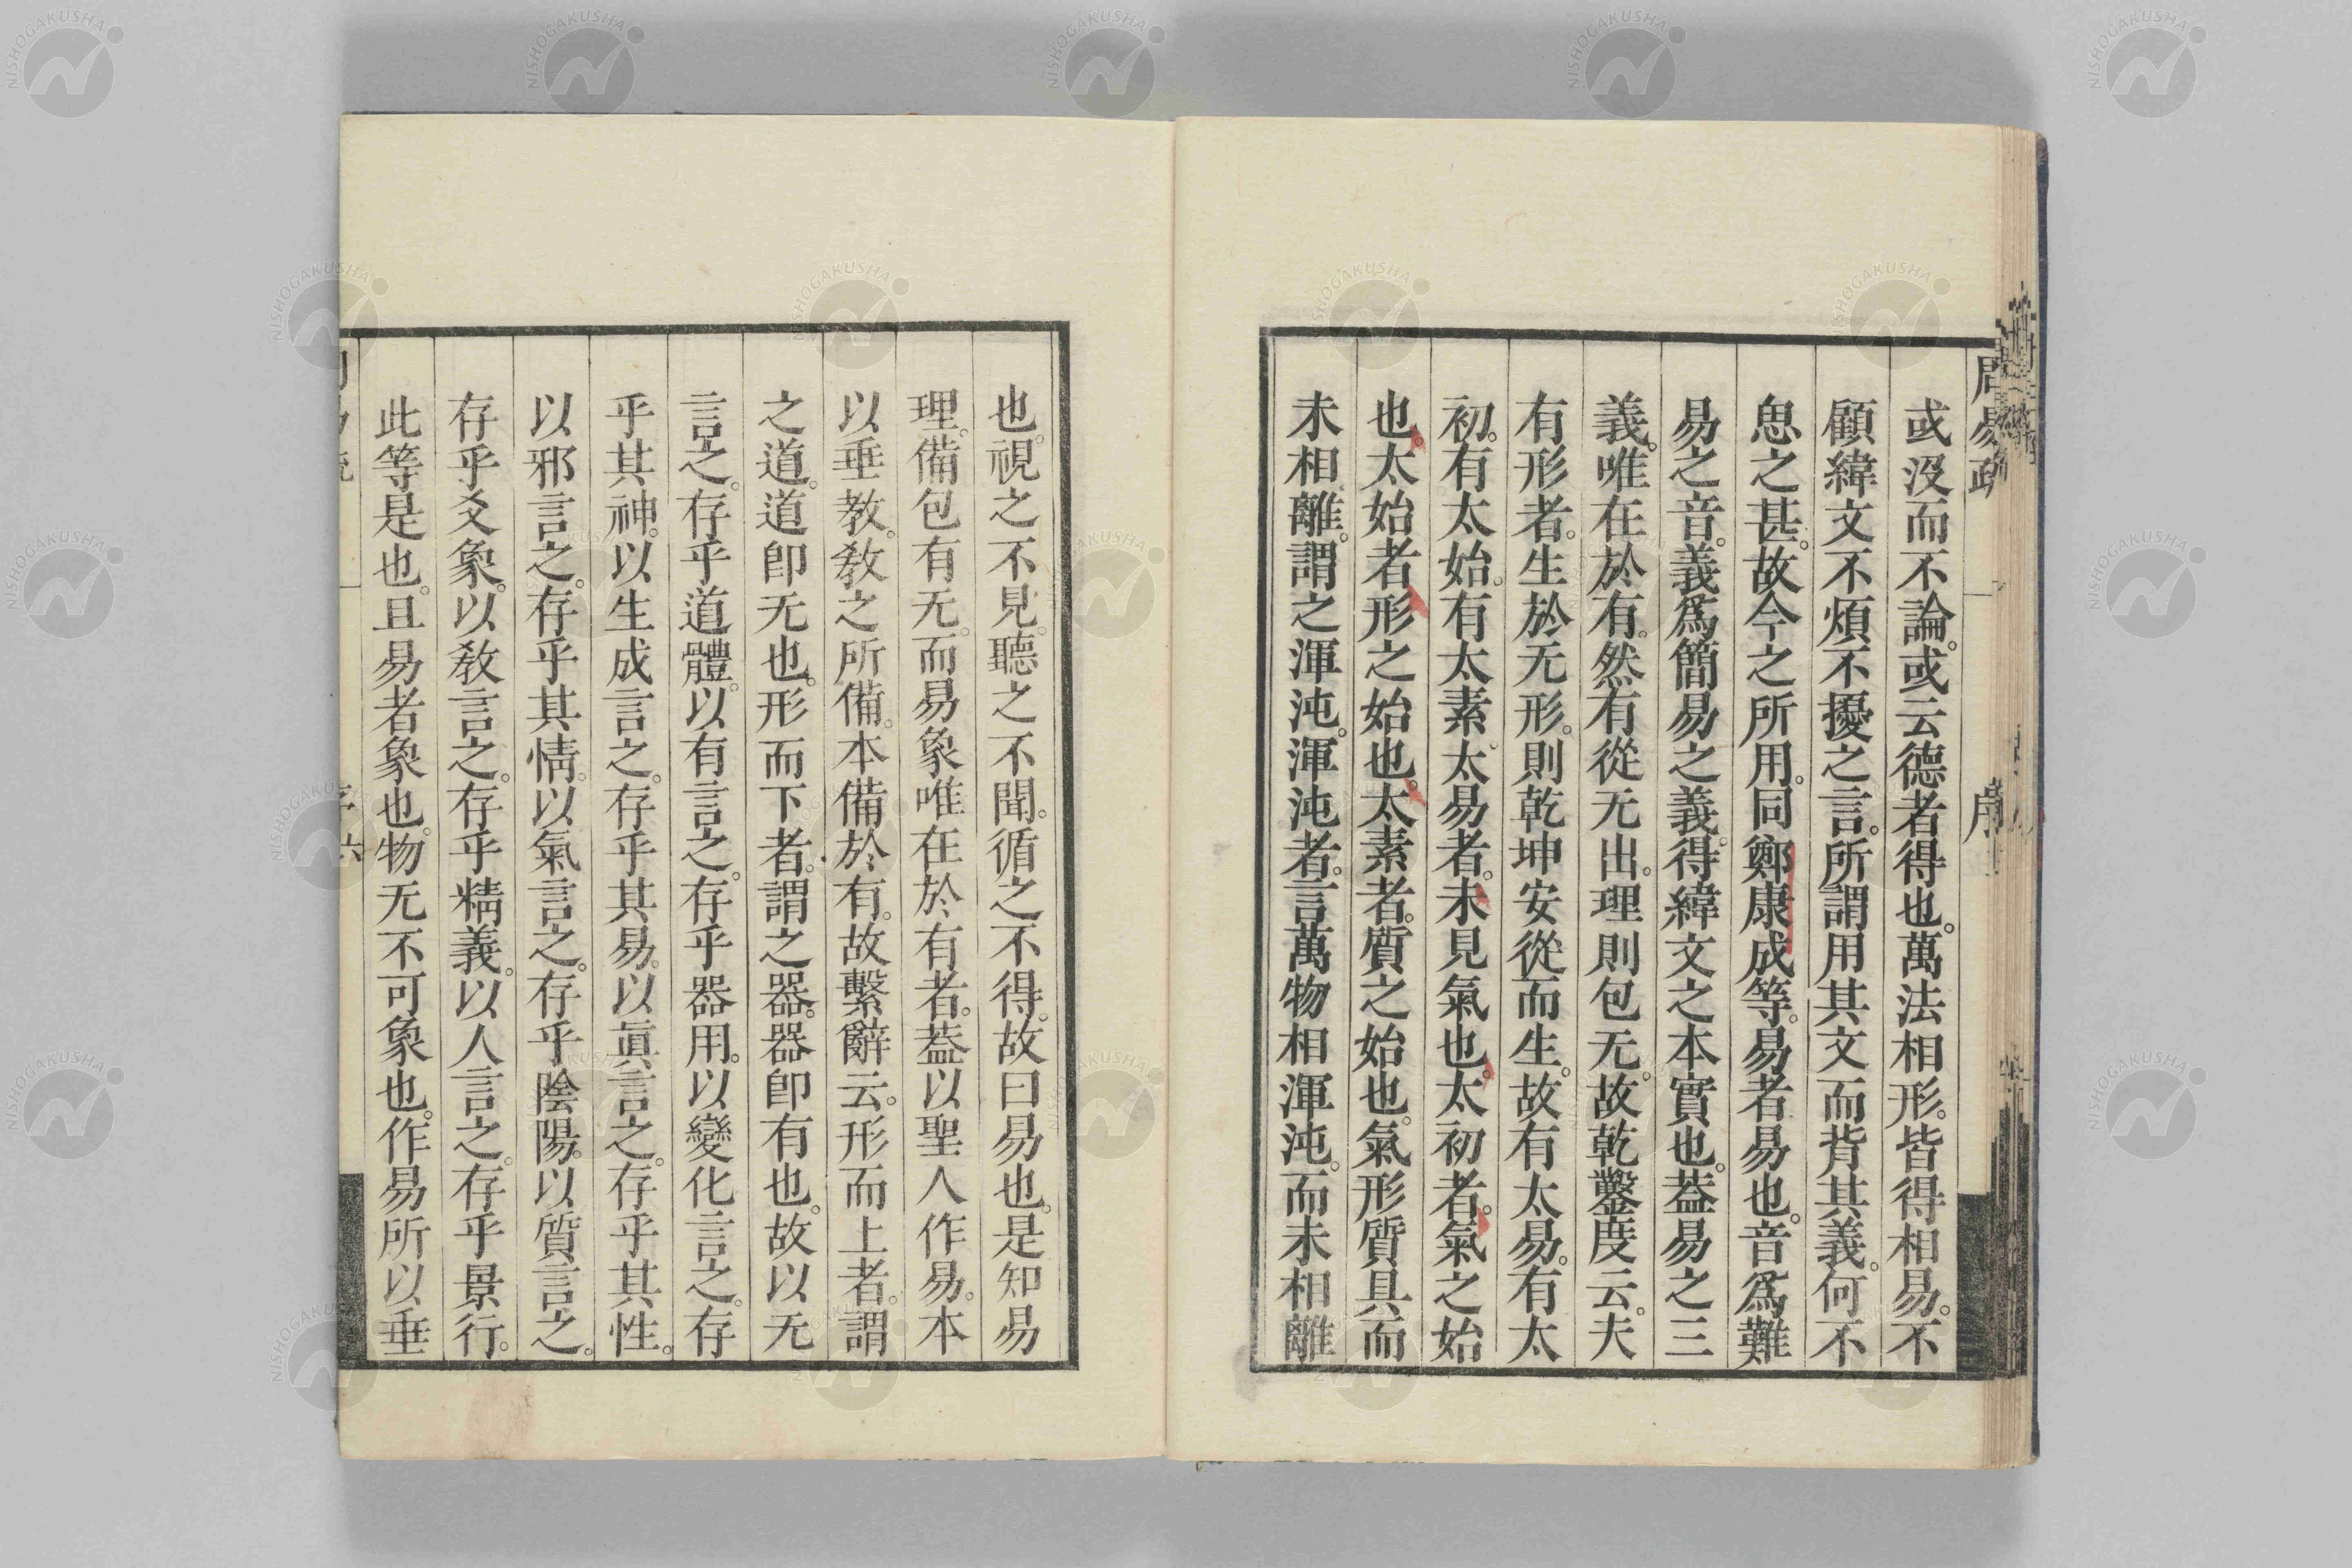 周易疏 序
或没而不論。或云德者得也。萬法相形。皆得相易。不
顧緯文不煩不擾之言。所謂用其文而背其義。何不
思之甚。故今之所用。同鄭康成等。易者易也。音爲難
易之音。義爲簡易之義。得緯文之本實也。葢易之三
義。唯在於有。然有從无出。理則包无。故乾鑿度云。夫
有形者。生於无形。則乾坤安從而生。故有太易。有太
初。有太始。有太素。太易者。未見氣也。太初者。氣之始
也。太始者形之始也。太素者。質之始也。氣形質具而
未相離。謂之渾沌。渾沌者。言萬物相渾沌。而未相離
也。視之不見。聽之不聞。循之不得。故曰易也。是知易
理。備包有无。而易象唯在於有者。葢以聖人作易。本
以垂教。教之所備。本備於有。故繫辭云。形而上者。謂
之道。道卽无也。形而下者。謂之器。器卽有也。故以无
言之。存乎道體。以有言之。存乎器用。以變化言之。存
乎其神。以生成言之。存乎其易。以眞言之。存乎其性。
以邪言之。存乎其情。以氣言之。存乎陰陽。以質言之。
存乎爻象。以教言之。存乎精義。以人言之。存乎景行。
此等是也。且易者象也。物无不可象也。作易所以垂
NISHOGAKUSHA